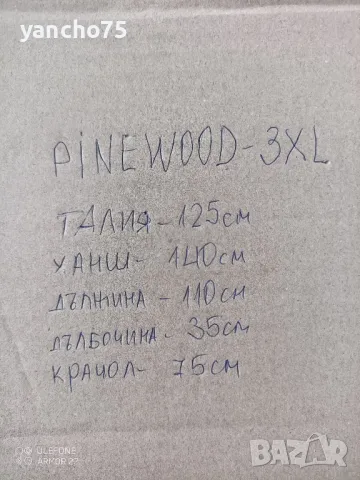 yancho75
PINEWOOD-3XL
ТАЛИЯ-125см
ХАНШ- 140см
ДЪЛЖИНА - 110см
ДЪЛБОЧИНА- 35см
КРАЧОЛ- 75см
ULEFONE
ARMOR 22
BAZAR